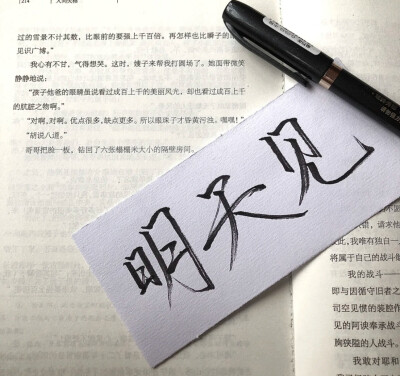 过的雪景不计其数,比眼前的要强上千百倍。再怎样也比瞬子的
见识广博。”
我心有不甘,气得想哭。这时,嫂子来帮我打圆场了。她面带微笑
静静地说:
“孩子他爸的眼睛虽说看过成百上千的美丽风光,却也看过成百上千
的肮脏之物啊。”
“对啊,对啊。优点很多,缺点更多。所以眼珠子才昏黄污浊。嘿嘿!”
“胡说八道。”
哥哥把脸一板,钻回了六张榻榻米大小的隔壁房间。
明天见
错,请求他
此,我唯有独自一人
将属于自己的战斗
我的战斗
即与因循守旧者之
司空见惯的装腔作
见的阿谀奉承战斗
胸狭隘的人战斗。
我敢对耶和